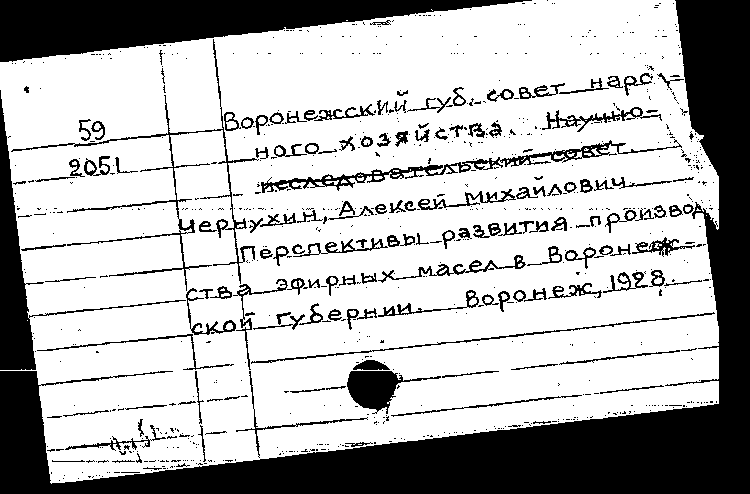 59
2051
Воронежсский губ. совет наро-
ного хозяйства. Научно-
исследовательский совет.
Чернухин, Алексей Михайлович.
Перспективы развития производ
ства эфирных масел в Воронеж-
ской губернии. Воронеж, 1928.